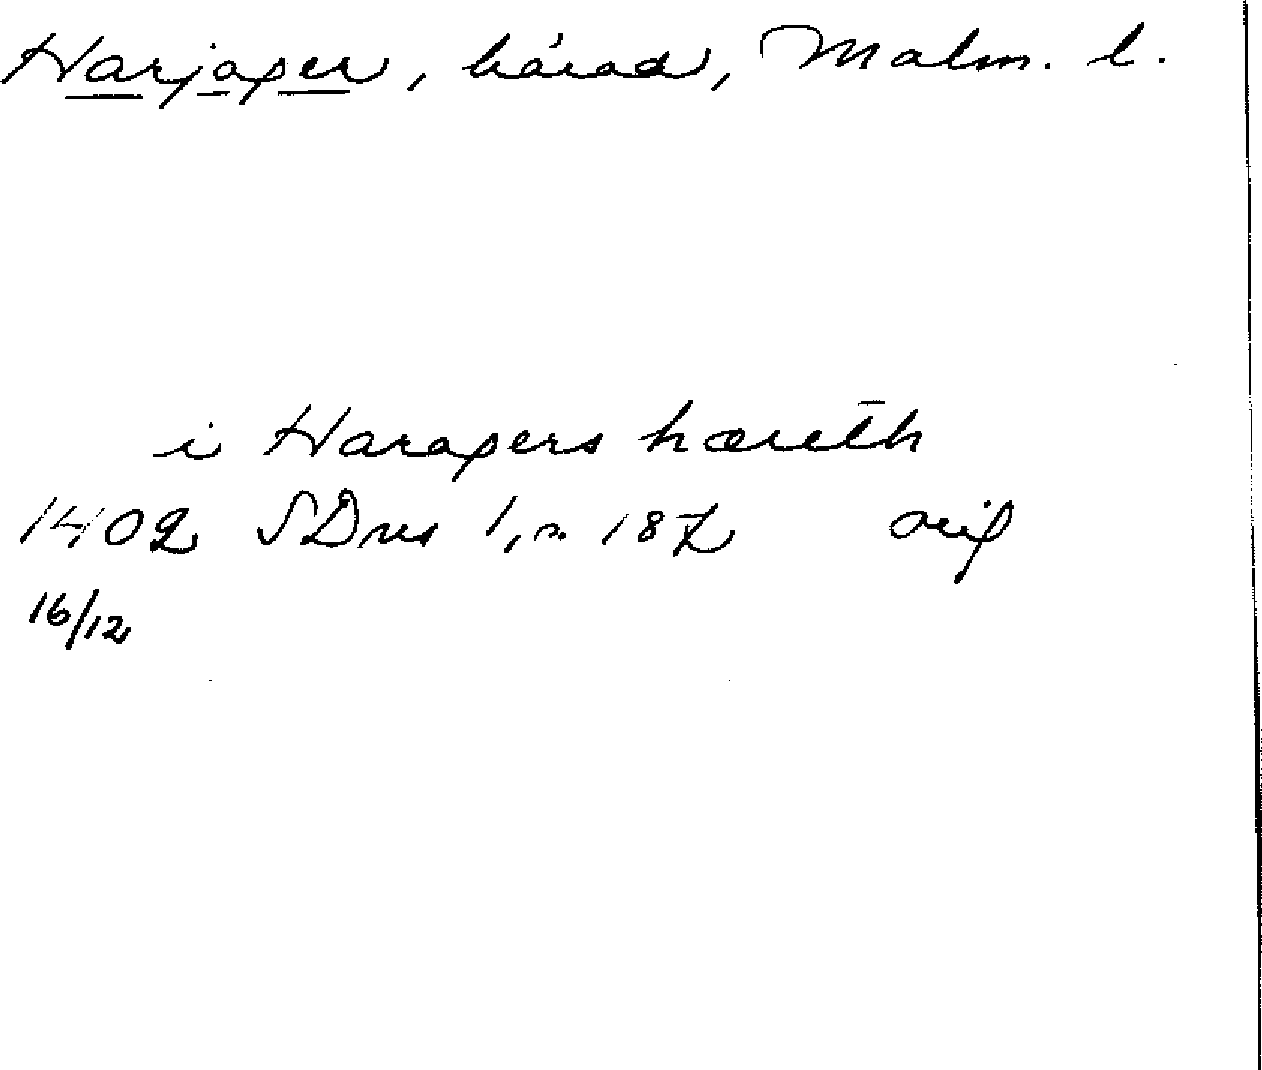 Harjager, härad, Malm. l.
i Haragers hæreth
1402 SDns 1, s. 187 orig
16/12